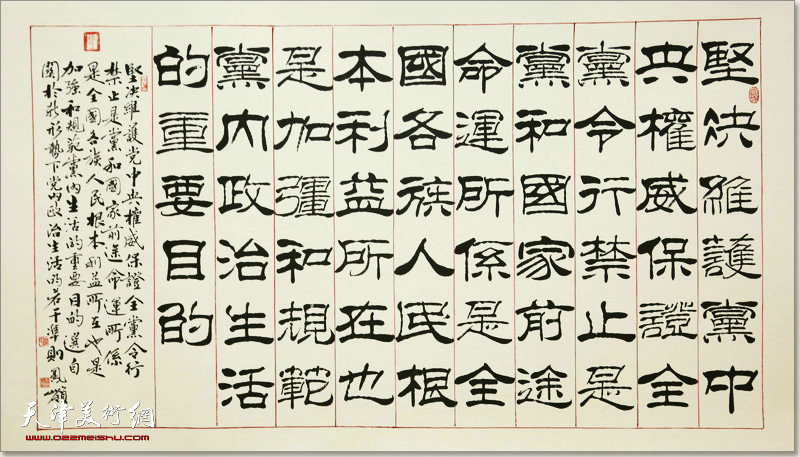 堅决維護黨中
央權威保證全
黨令行禁止是
黨和國家前途
命運所係是全
國各族人民根
本利益所在也
是加彊和規範
黨内政治生活
的重要目的
堅决維護党中央權威保證全黨令行
禁止是黨和國家前途命運所係
是全國各族人民根本利益所在也是
加强和規範黨内生活的重要目的選自
關於新形勢下党内政治生活的若干準則
天津美術網
www.022meishu.com